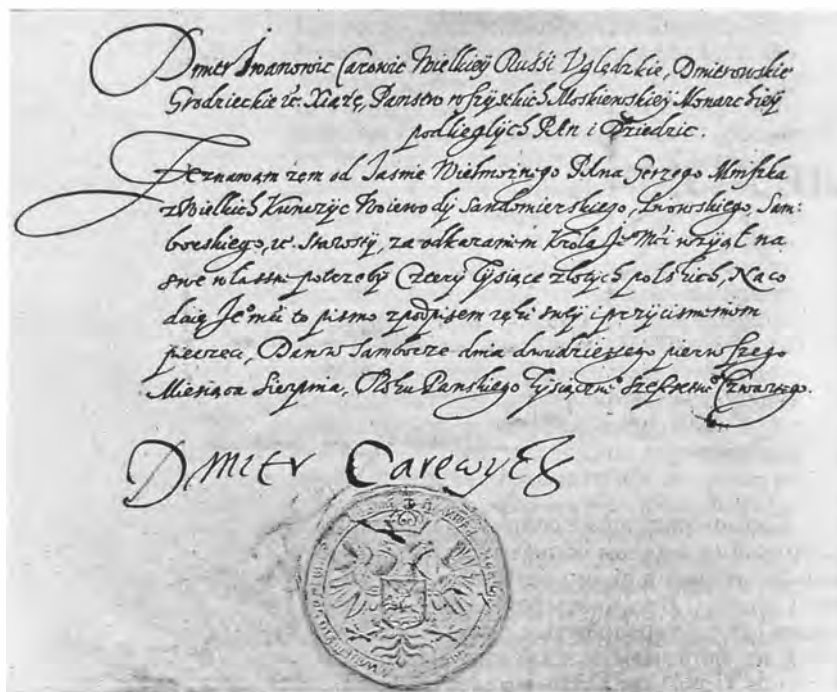 Dmitr Iwanowic Carowic Wielkiey Russi Vgledzkie, Dmitrowskie
Grodzieckie etc. Xiąże, Panstw rossyiskich Moskiewskiey Monarchiey
podliegłych Pan i Dziedzic.
Zeznawam żem od Jasnie Wielmożnego Pana Gerzego Mniszka
z Wielkich Kunczyc Woiewody Sandomierskiego, Lwowskiego, Sam-
borskiego, etc. Starosty, za odkazaniem Krola Je Mci wziął na
swe własne potrzeby Cztery tysiące złotych polskich, Na co
daię Je Mci to pismo z podpisem ręki swey i przycisnieniem
pieczęci, Dan w Samborze dnia dwudziestego pierwszego
Miesiąca Sierpnia, Roku Panskiego tysiącne° szescsetne° Czwartego.
Dmitr Carewycz